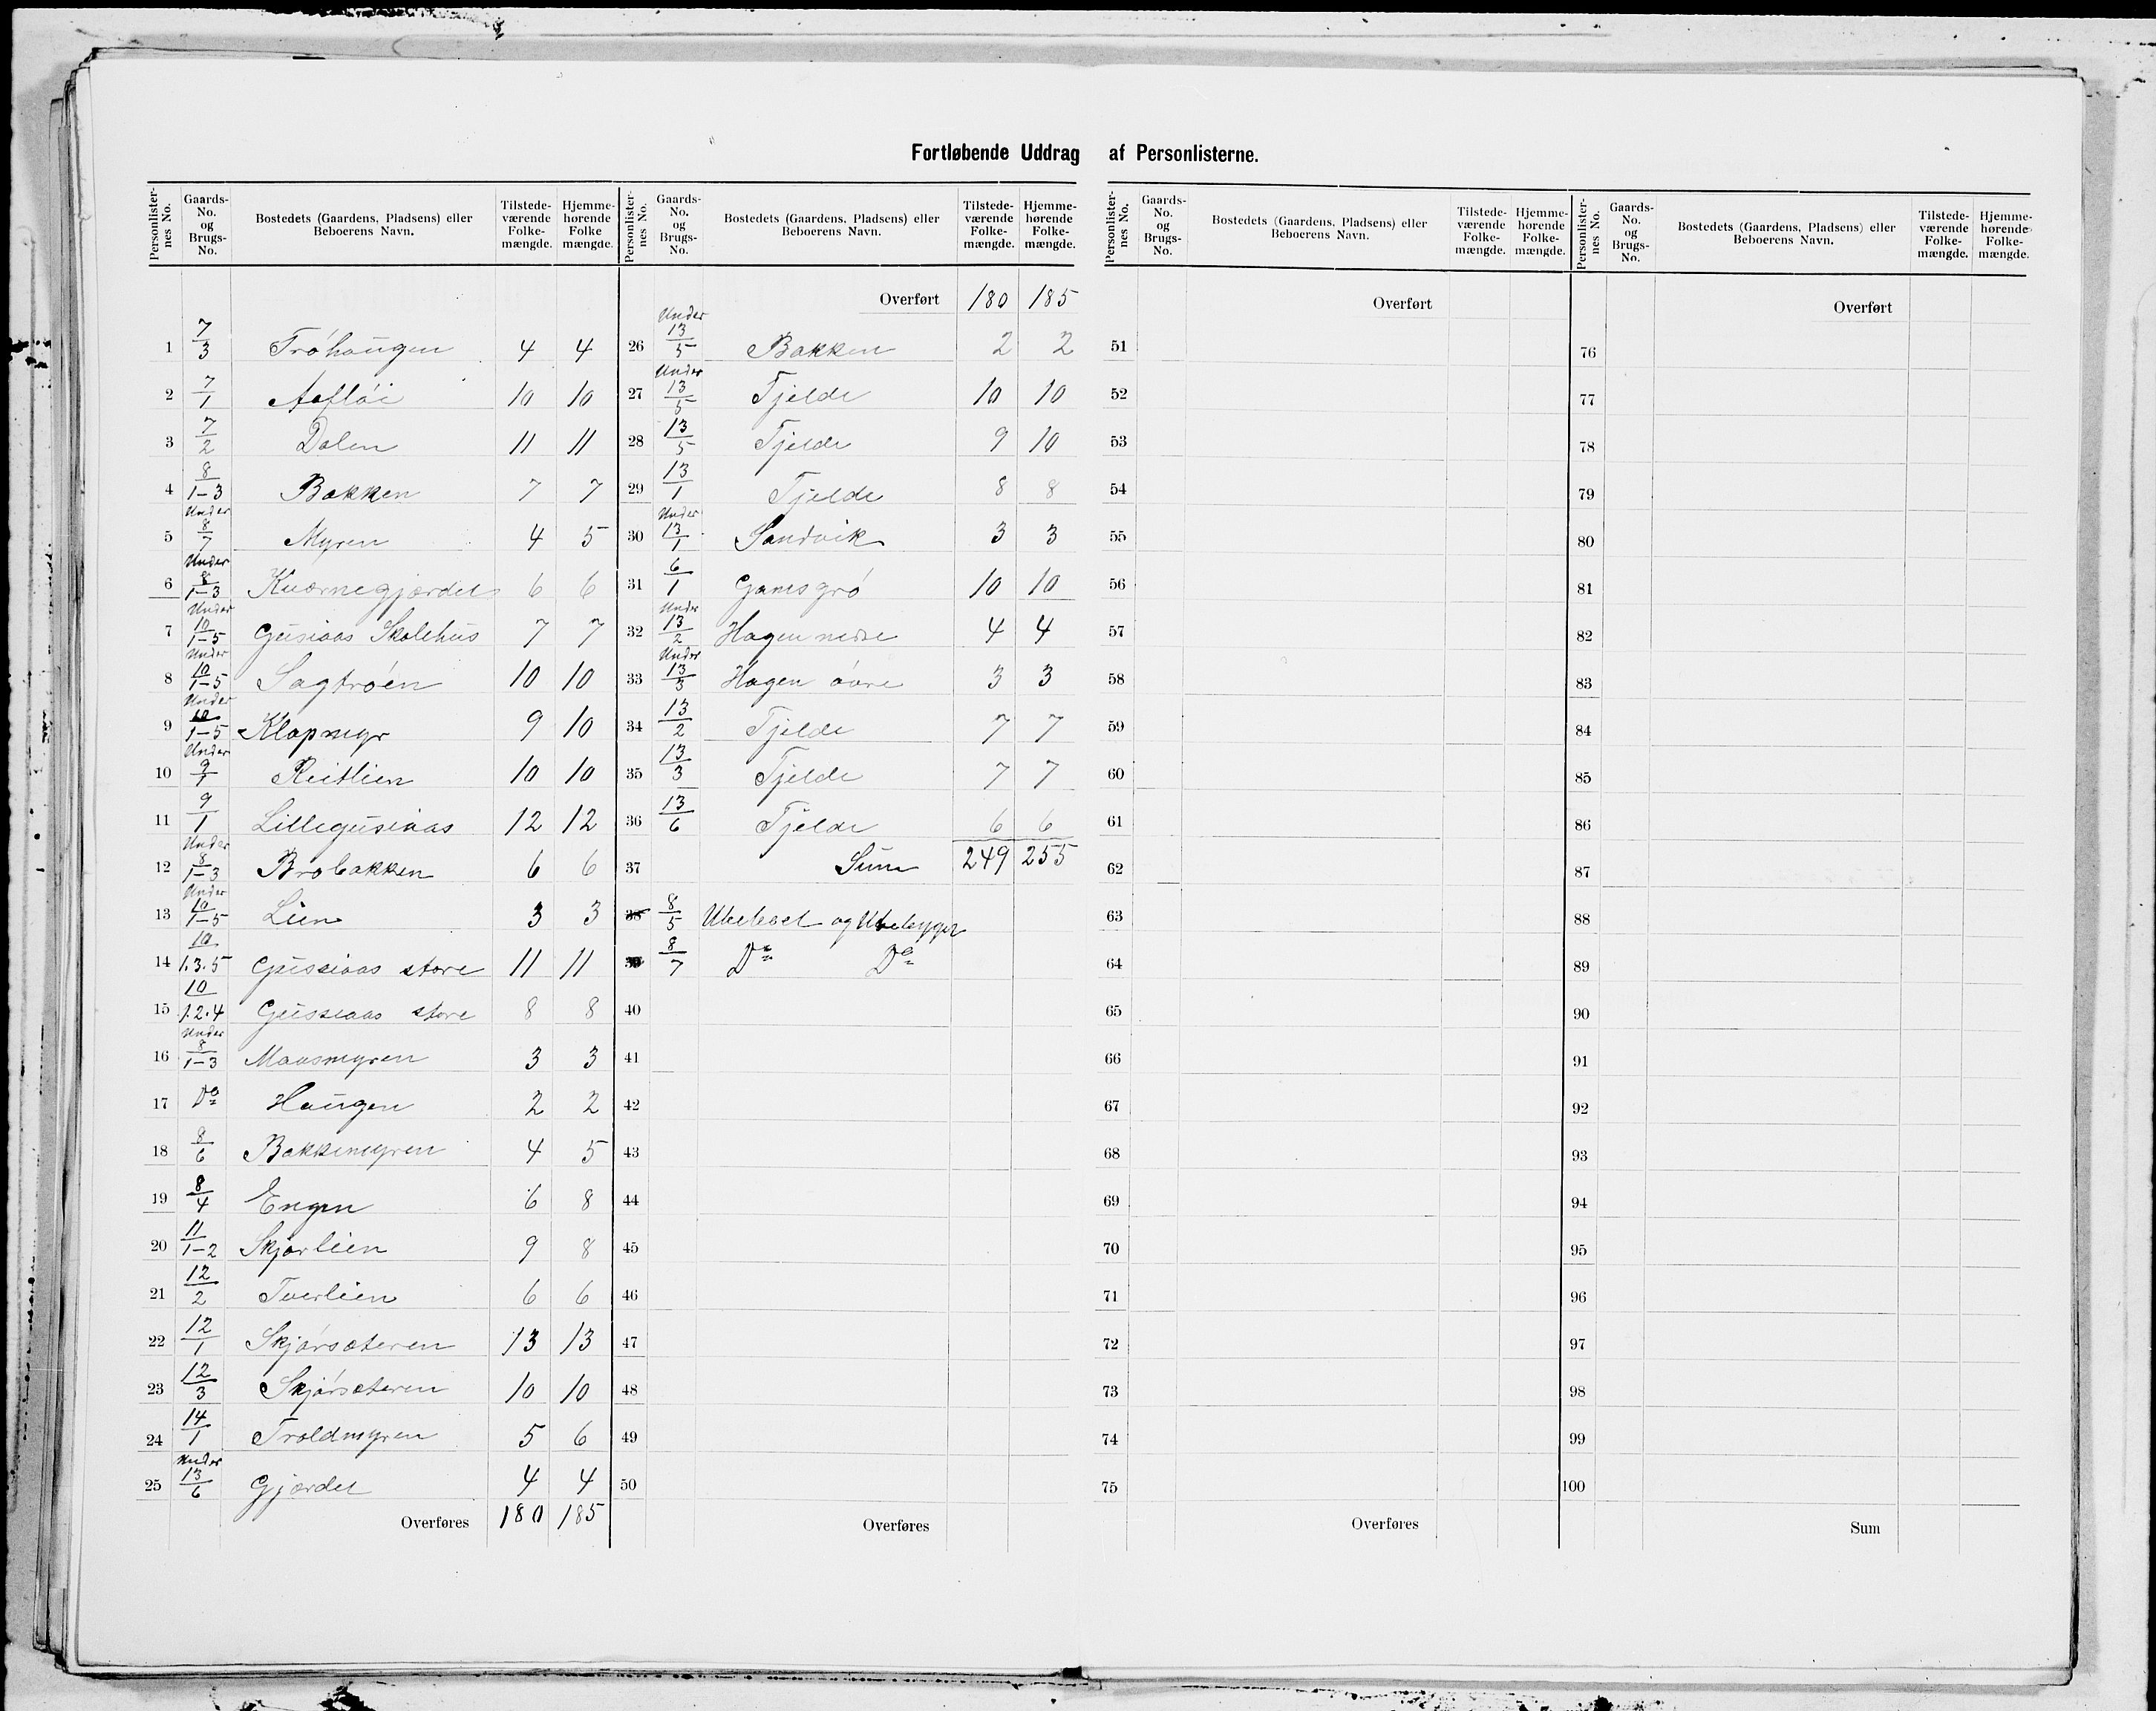 Fortløbende Uddrag af Personlisterne.
Personlisternes No. | Gaards-No. og Brugs-No. | Bostedets (Gaardens, Pladsens) eller Beboerens Navn. | Tilstedeværende Folkemængde. | Hjemmehørende Folkemængde.
1 7/3 Tróhaugen 4 4
2 7/1 Aaflói 10 10
3 7/2 Dalen 11 11
4 8/1-3 Bakken 7 7
5 Under 8/7 Myren 4 5
6 Under 8/1-3 Kværnegjærdet 6 6
7 Under 10/1-5 Gusiaas Skolehus 7 7
8 Under 10/1-5 Sagtróen 10 10
9 Under 10/1-5 Klopmyr 9 10
10 Under 9/1 Reitlien 10 10
11 9/1 Lillegusiaas 12 12
12 Under 8/1-3 Brobakken 6 6
13 Under 10/1-5 Lien 3 3
14 10/1.3.5 Gussiaas store 11 11
15 10/1.2.4 Gussiaas store 8 8
16 Under 8/1-3 Maasmyren 3 3
17 Do Haugen 2 2
18 8/6 Bakkemyren 4 5
19 8/4 Engen 6 8
20 11/1-2 Skjorlien 9 8
21 12/2 Tverlien 6 6
22 12/1 Skjórsæteren 13 13
23 12/3 Skjórsæteren 10 10
24 14/1 Troldmyren 5 6
25 Under 13/6 Gjærdet 4 4
Overføres 180 185
Personlisternes No. | Gaards-No. og Brugs-No. | Bostedets (Gaardens, Pladsens) eller Beboerens Navn. | Tilstedeværende Folkemængde. | Hjemmehørende Folkemængde.
Overført 180 185
26 Under 13/5 Bakken 2 2
27 Under 13/5 Tjelde 10 10
28 13/5 Tjelde 9 10
29 13/1 Tjelde 8 8
30 Under 13/1 Sandvik 3 3
31 6/1 Gamsgró 10 10
32 Under 13/2 Hagen nedre 4 4
33 Under 13/3 Hagen óvre 3 3
34 13/2 Tjelde 7 7
35 13/3 Tjelde 7 7
36 13/6 Tjelde 6 6
37 Sum 249 255
38 8/5 Ubeboet og Ubebygget
39 8/7 Do Do
40
41
42
43
44
45
46
47
48
49
50
Overføres
Personlisternes No. | Gaards-No. og Brugs-No. | Bostedets (Gaardens, Pladsens) eller Beboerens Navn. | Tilstedeværende Folkemængde. | Hjemmehørende Folkemængde.
Overført
51
52
53
54
55
56
57
58
59
60
61
62
63
64
65
66
67
68
69
70
71
72
73
74
75
Overføres
Personlisternes No. | Gaards-No. og Brugs-No. | Bostedets (Gaardens, Pladsens) eller Beboerens Navn. | Tilstedeværende Folkemængde. | Hjemmehørende Folkemængde.
Overført
76
77
78
79
80
81
82
83
84
85
86
87
88
89
90
91
92
93
94
95
96
97
98
99
100
Sum